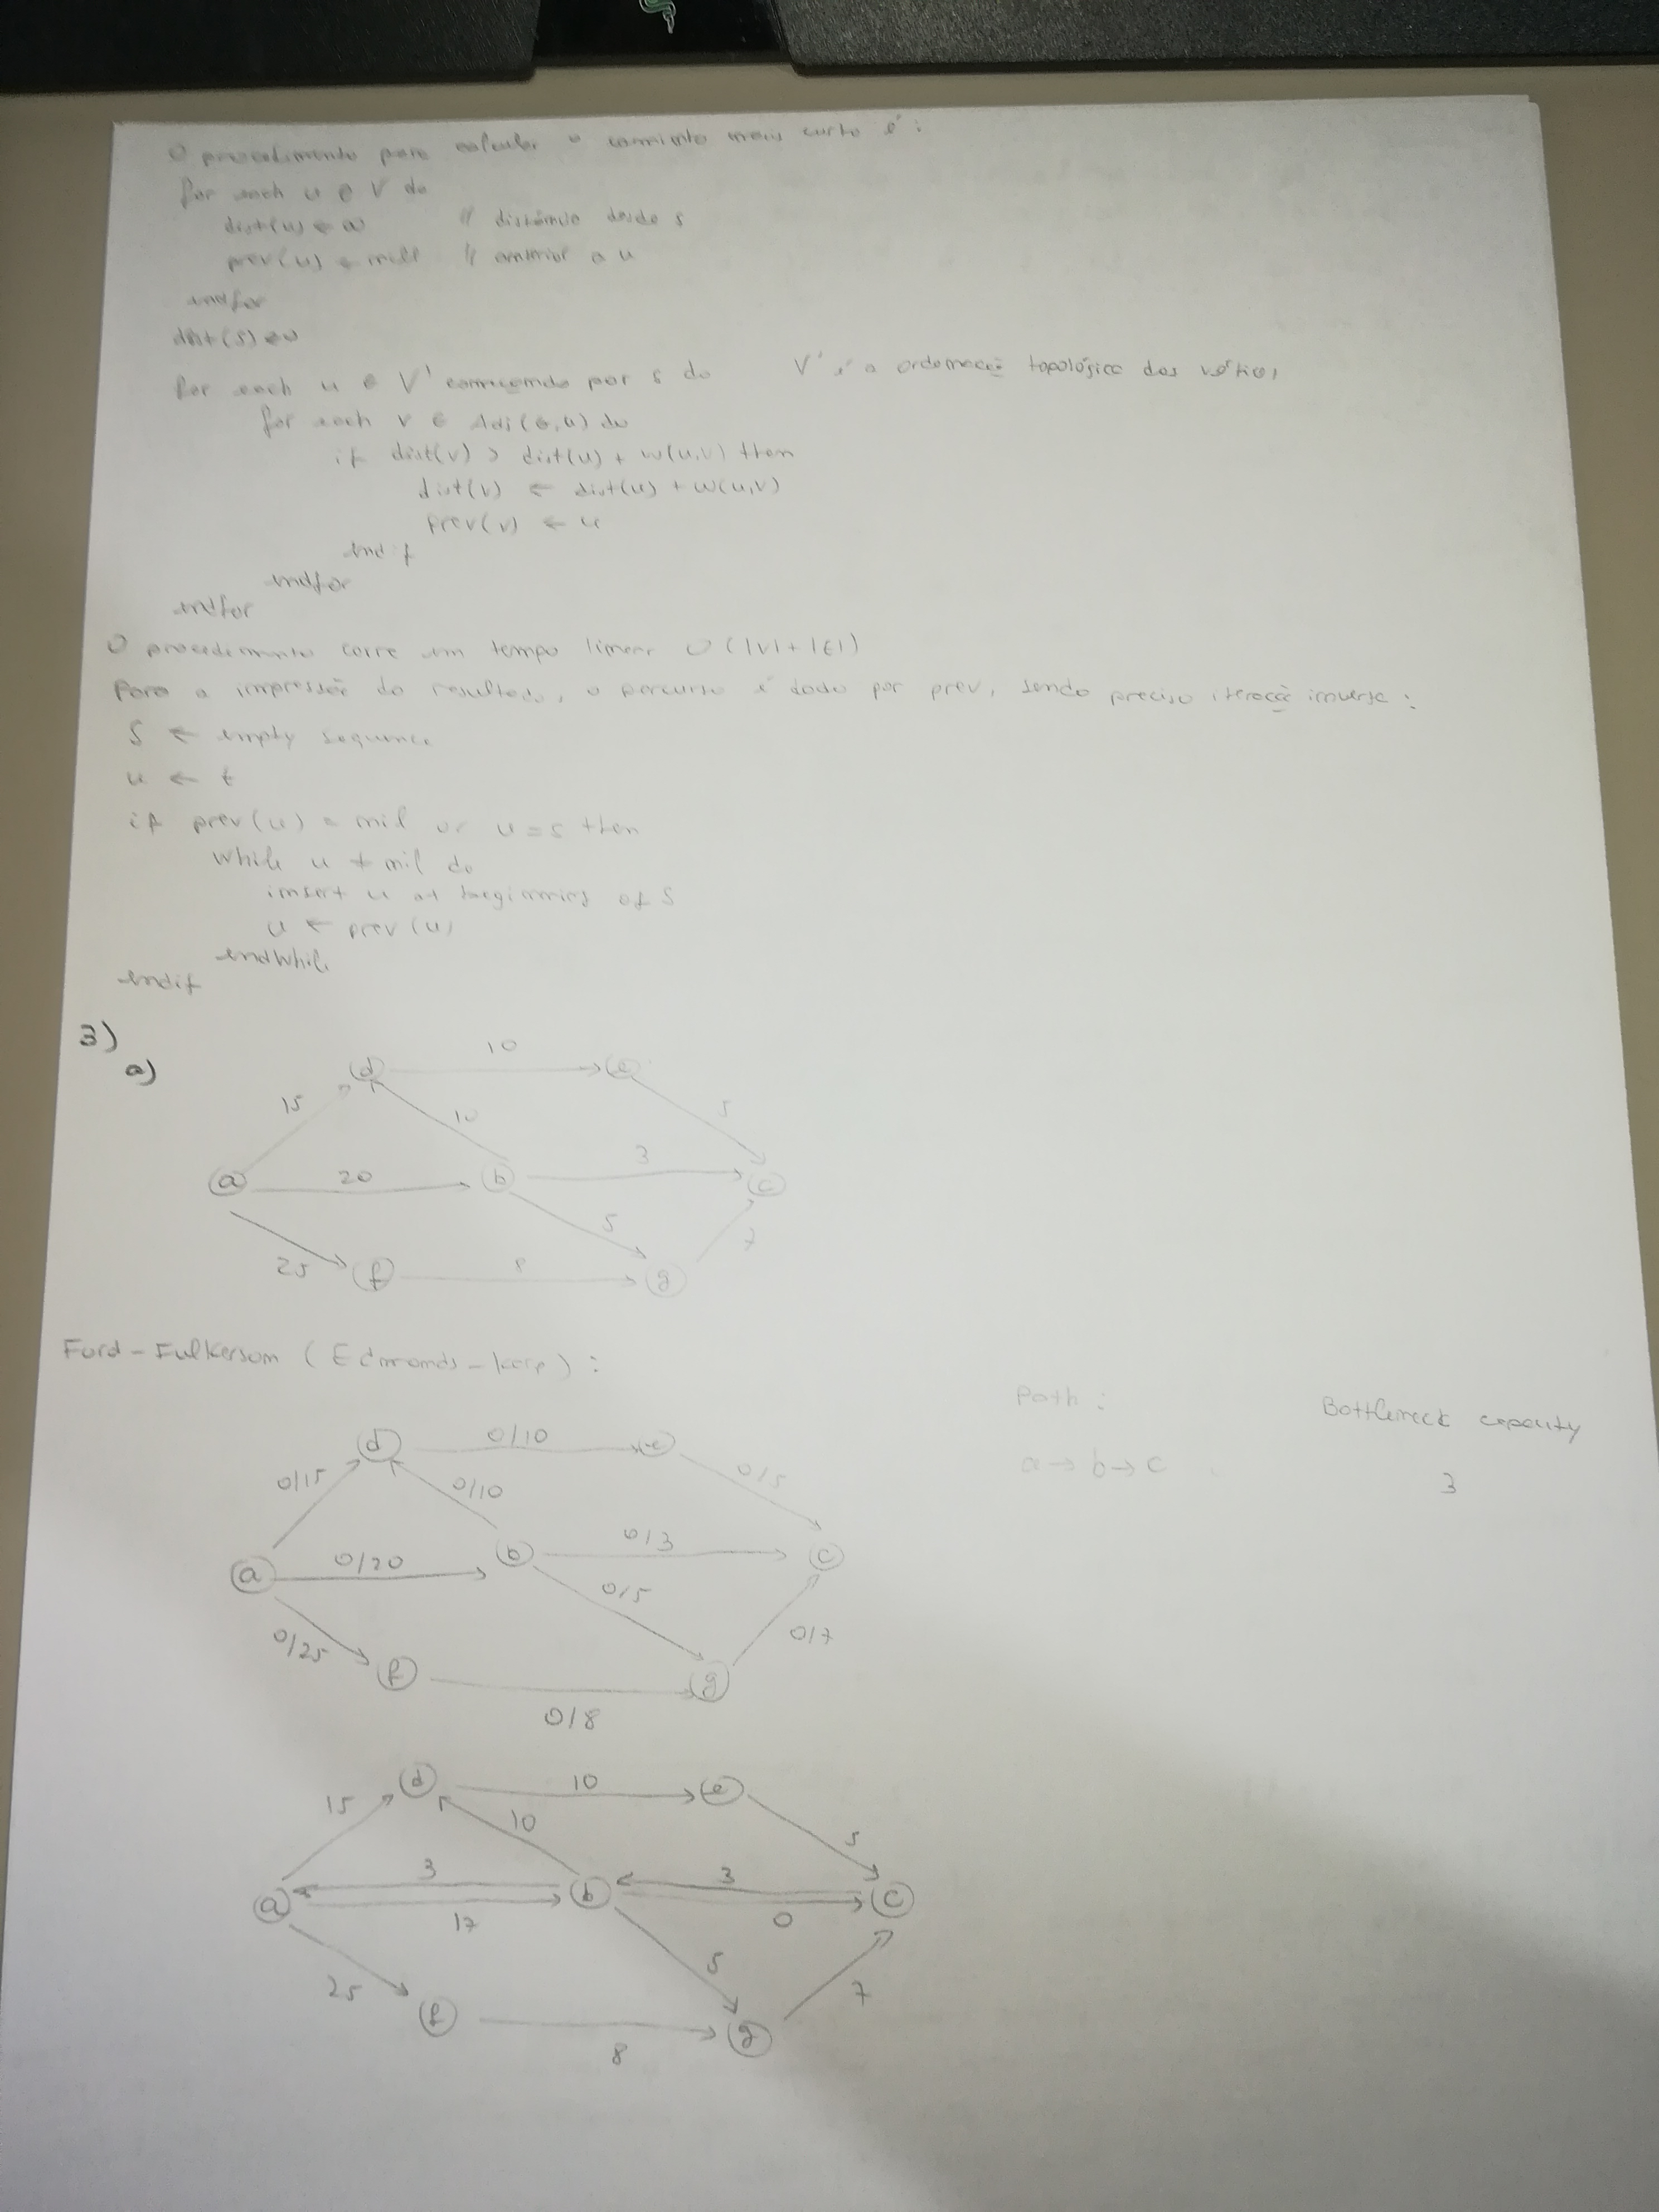 O procedimento para calcular o caminho mais curto é:
for each u ∈ V do
dist(u) ← ∞ // distância desde s
prev(u) ← nil // anterior a u
endfor
dist(s) ← 0
for each u ∈ V' começando por s do V' é a ordenação topológica dos vértices
for each v ∈ Adj(G,u) do
if dist(v) > dist(u) + w(u,v) then
dist(v) ← dist(u) + w(u,v)
prev(v) ← u
endif
endfor
endfor
O procedimento corre em tempo linear O(|V|+|E|)
Para a impressão do resultado, o percurso é dado por prev, sendo preciso iteração inversa:
S ← empty sequence
u ← t
if prev(u) = nil or u = s then
while u ≠ nil do
insert u at beginning of S
u ← prev(u)
endwhile
endif
3)
a)
d 10 e
15 10 5
a 20 b 3 c
5 7
25 f 8 g
Ford-Fulkerson (Edmonds-Karp):
Path: Bottleneck capacity
a → b → c 3
d 0/10 e
0/15 0/10 0/5
a 0/20 b 0/3 c
0/5
0/25 0/7
f g
0/8
d 10 e
15 10 5
3 3
a b c
17 0
5
25 7
f g
8